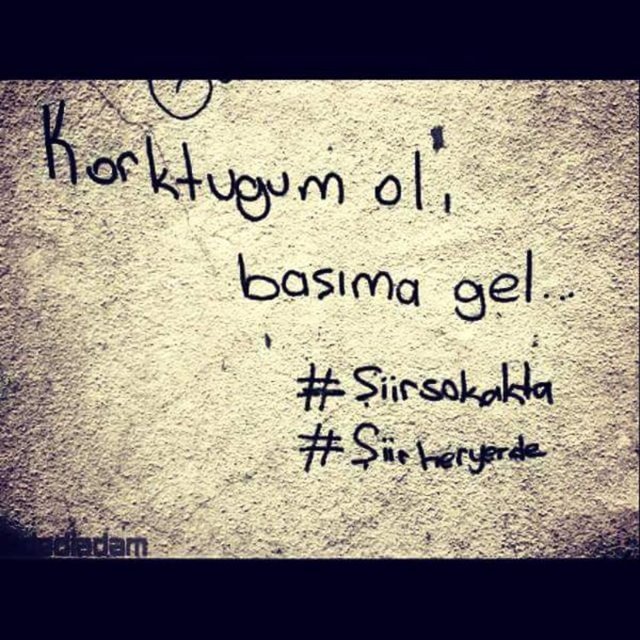 Korktugum ol,
basıma gel...
#Şiirsokakta
#Şiirheryerde